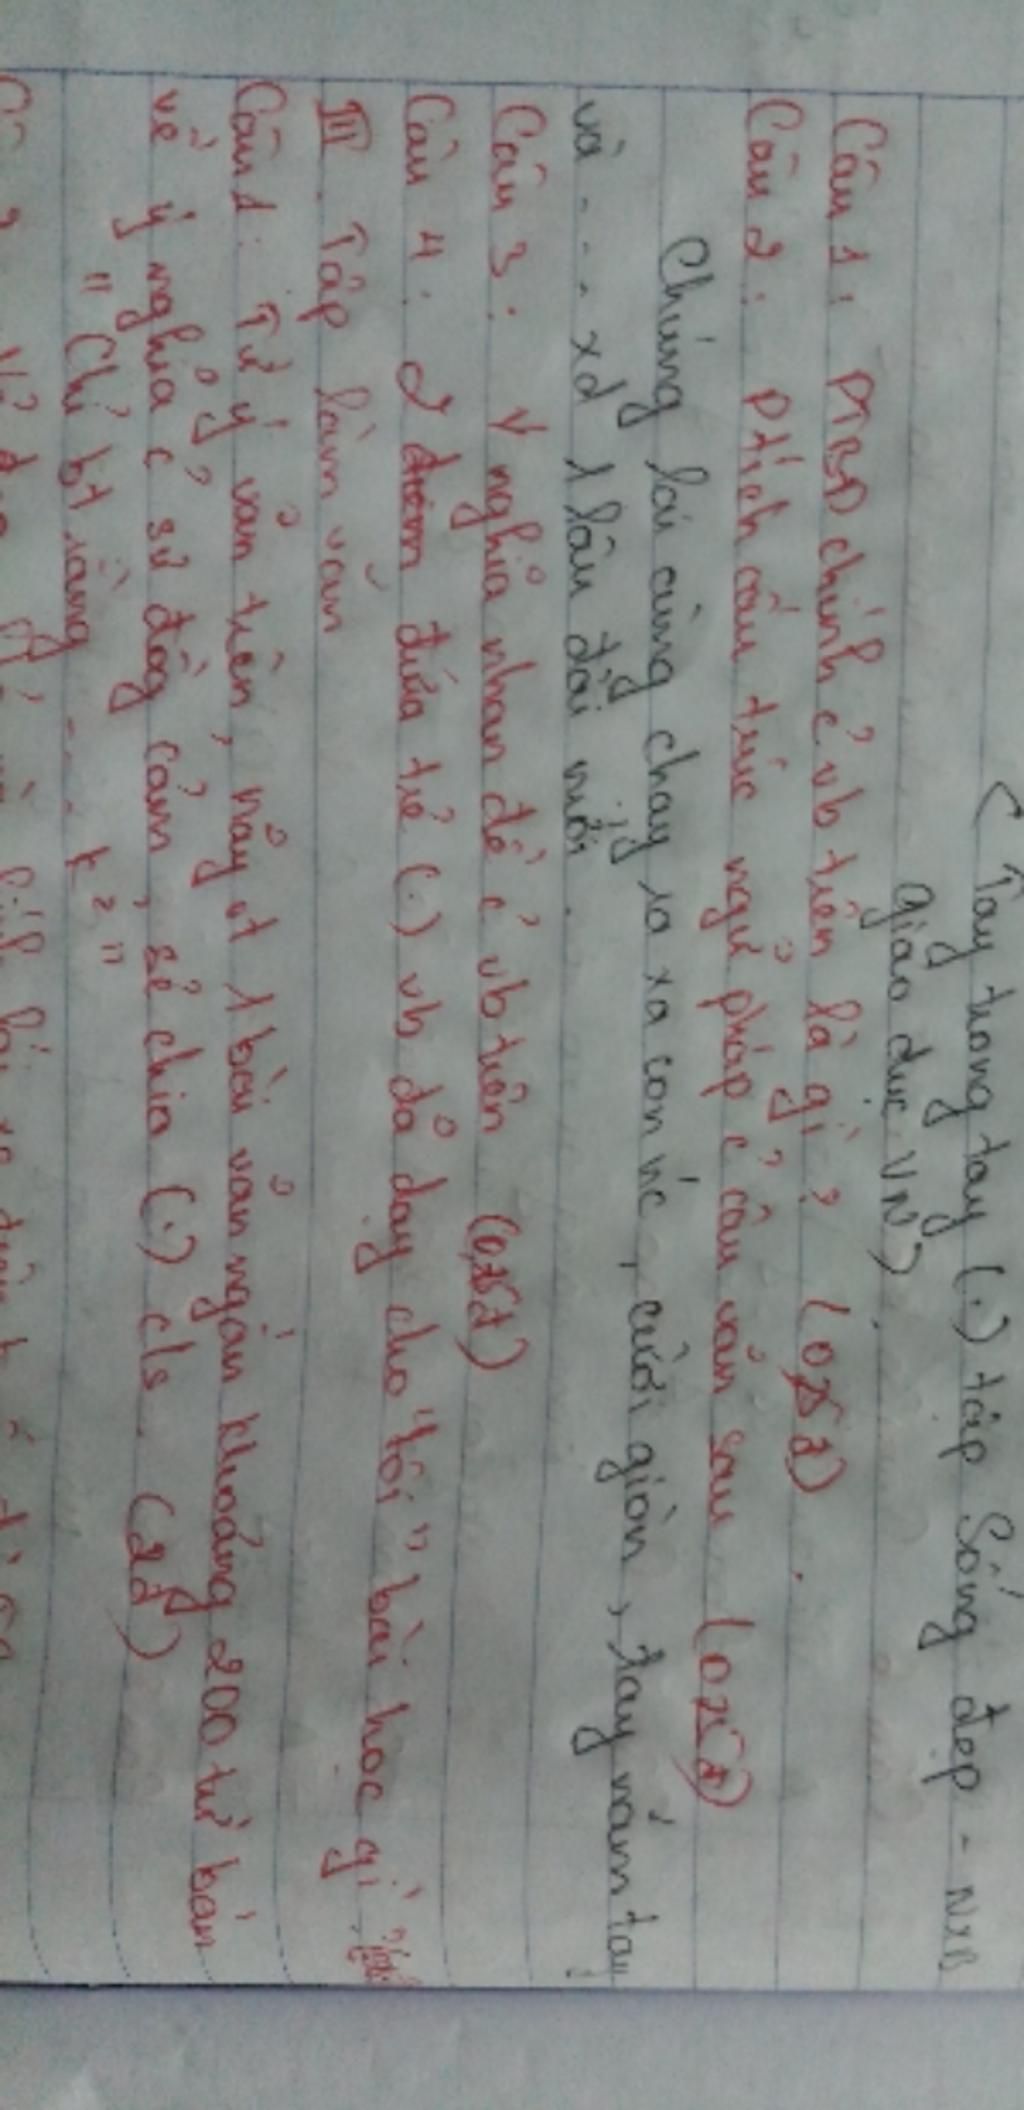 ( Tay trong tay (.) tập Sống đẹp - NXB
giáo dục VN)
Câu 1: PTBĐ chính c̉ vb trên là gì? (0,5đ)
Câu 2: Ptích cấu trúc ngữ pháp c̉ câu văn sau (0,5đ)
Chúng lại cùng chạy ra xa con nc, cười giòn, tay nắm tay
và ... xd 1 lâu đài mới.
Câu 3: Ý nghĩa nhan đề c̉ vb trên
Câu 4: 2 đứa trẻ (.) vb đã dạy cho "tôi" bài học gì?
III. Tập làm văn
Câu 1: Từ ý văn trên, hãy vt 1 bài văn ngắn khoảng 200 từ bàn
về ý nghĩa c̉ sự đồng cảm, sẻ chia (.) c/s. (2đ)
" Chỉ bt rằng ...